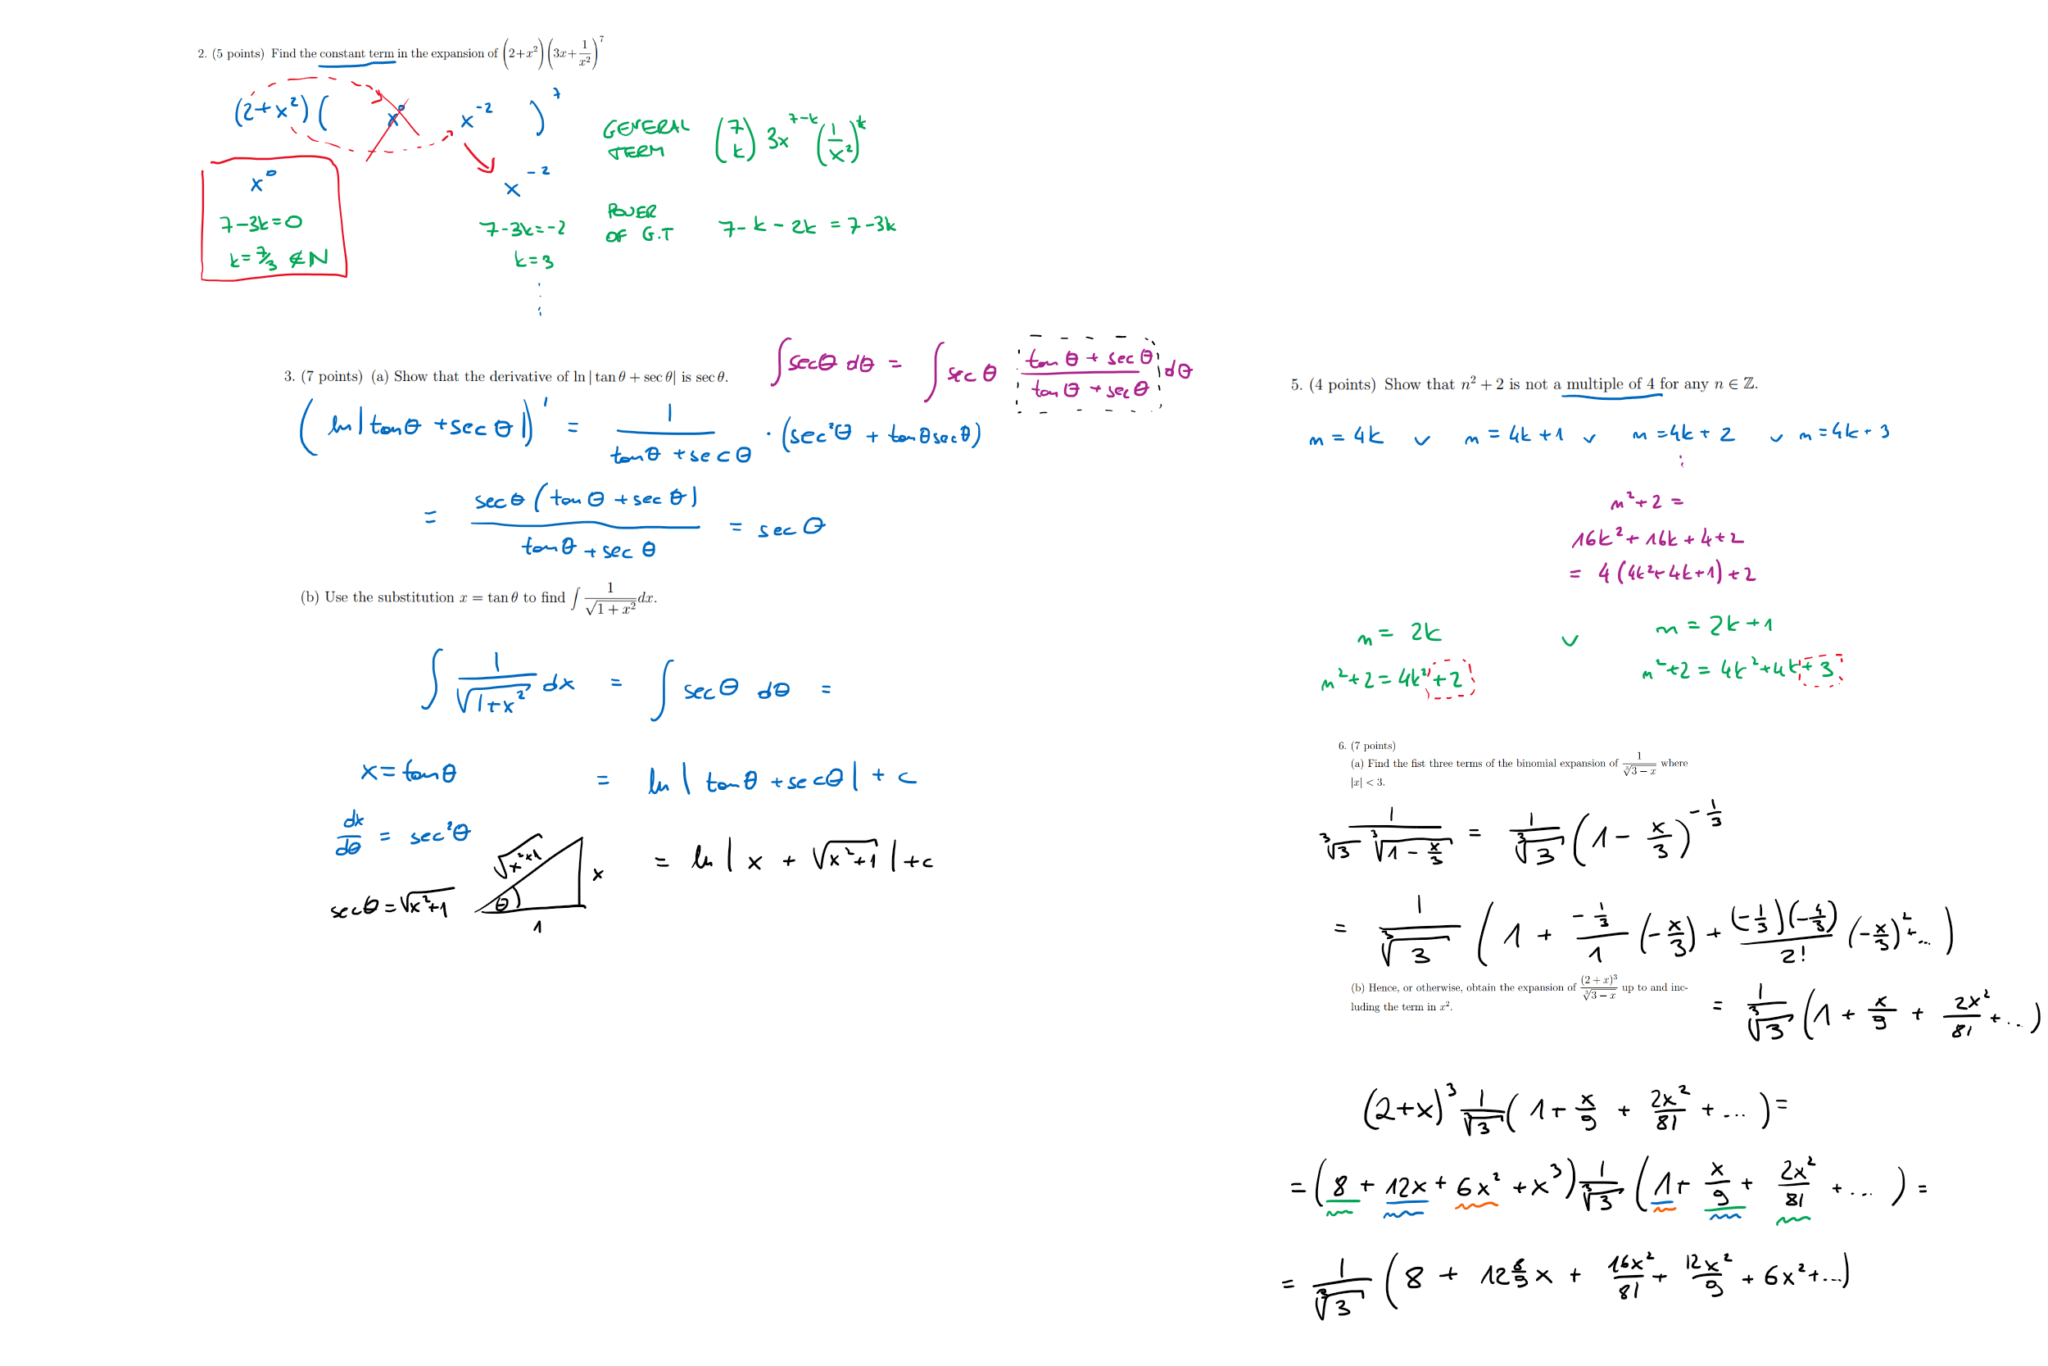 2. (5 points) Find the constant term in the expansion of (2+x²)(3x+1/x²)⁷
(2+x²)( x⁰ x⁻² )⁷
GENERAL TERM (7 k) 3x^(7-k) (1/x²)^k
x⁰
x⁻²
7-3k=0
7-3k=-2
POWER OF G.T 7-k-2k = 7-3k
k=7/3 ∉ N
k=3
3. (7 points) (a) Show that the derivative of ln|tan θ + sec θ| is sec θ.
∫secθ dθ = ∫ sec θ (tan θ + sec θ)/(tan θ + sec θ) dθ
(ln|tanθ + sec θ|)' = 1/(tanθ + sec θ) · (sec²θ + tanθsecθ)
= secθ(tanθ + sec θ)/(tanθ + sec θ) = sec θ
(b) Use the substitution x = tan θ to find ∫ 1/√(1+x²) dx.
∫ 1/√(1+x²) dx = ∫ secθ dθ =
x = tanθ
= ln|tanθ + secθ| + c
dx/dθ = sec²θ
√(x²+1)
x
θ
1
secθ = √(x²+1)
= ln|x + √(x²+1)| + c
5. (4 points) Show that n² + 2 is not a multiple of 4 for any n ∈ ℤ.
n = 4k ∨ n = 4k+1 ∨ n = 4k+2 ∨ n = 4k+3
n²+2 =
16k²+16k+4+2
= 4(4k²+4k+1)+2
n = 2k ∨ n = 2k+1
n²+2 = 4k²+2
n²+2 = 4k²+4k+3
6. (7 points)
(a) Find the fist three terms of the binomial expansion of 1/∛(3−x) where
|x| < 3.
1/(∛3 ∛(1−x/3)) = 1/∛3 (1−x/3)^(−1/3)
= 1/∛3 (1 + (−1/3)/1 (−x/3) + (−1/3)(−4/3)/2! (−x/3)² + ...)
(b) Hence, or otherwise, obtain the expansion of (2+x)³/∛(3−x) up to and inc-
luding the term in x².
= 1/∛3 (1 + x/9 + 2x²/81 + ...)
(2+x)³ 1/∛3 (1 + x/9 + 2x²/81 + ...) =
= (8 + 12x + 6x² + x³) 1/∛3 (1 + x/9 + 2x²/81 + ...) =
= 1/∛3 (8 + 12 8/9 x + 16x²/81 + 12x²/9 + 6x² + ...)